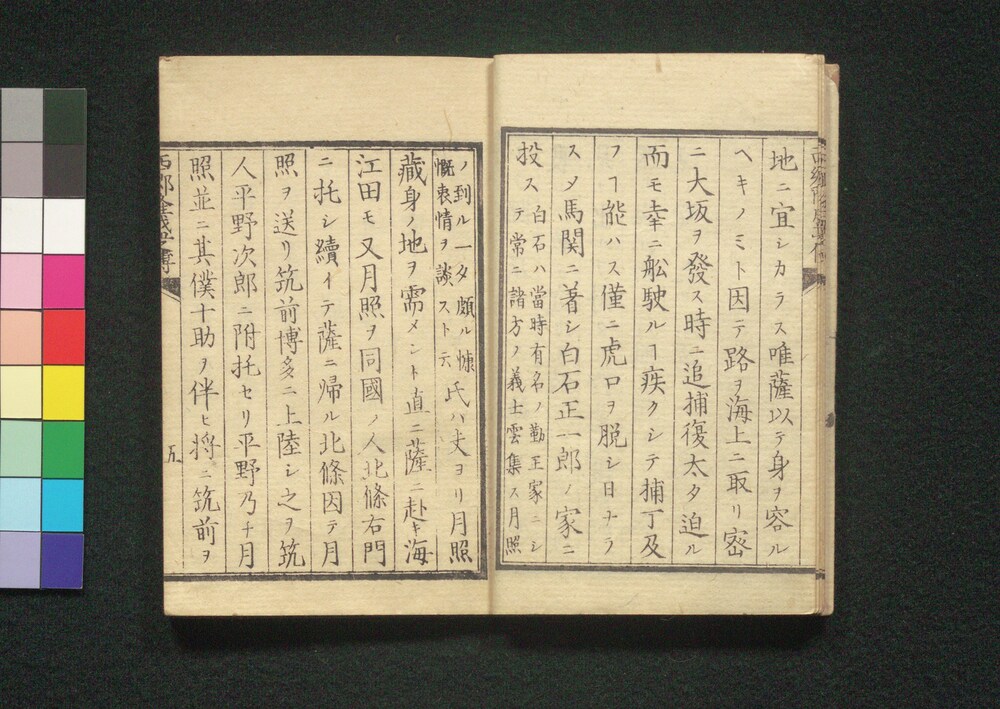 地ニ宜シカラス唯薩以テ身ヲ容ル
ヘキノミト因テ路ヲ海上ニ取リ密
ニ大坂ヲ發ス時ニ追捕復太タ迫ル
而モ幸ニ舩駛ルヿ疾クシテ捕丁及
フヿ能ハス僅ニ虎口ヲ脱シ日ナラ
スメ馬関ニ著シ白石正一郎ノ家ニ
投ス
白石ハ當時有名ノ勤王家ニシ
テ常ニ諸方ノ義士雲集ス月照
ノ到ル一夕頗ル慷
慨衷情ヲ談スト云
氏ハ夫ヨリ月照
蔵身ノ地ヲ需メント直ニ薩ニ赴キ海
江田モ又月照ヲ同國ノ人北條右門
ニ托シ續イテ薩ニ帰ル北條因テ月
照ヲ送リ筑前博多ニ上陸シ之ヲ筑
人平野次郎ニ附托セリ平野乃チ月
照並ニ其僕十助ヲ伴ヒ将ニ筑前ヲ
五